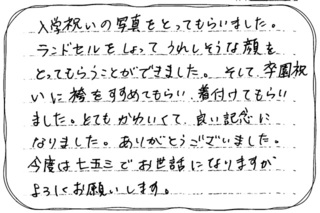 入学祝いの写真をとってもらいました。
ランドセルをしょってうれしそうな顔を
とってもらうことができました。そして、卒園祝
いに袴をすすめてもらい、着付けてもらい
ました。とてもかわいくて、良い記念に
なりました。ありがとうございました。
今度は七五三でお世話になりますが
よろしくお願いします。